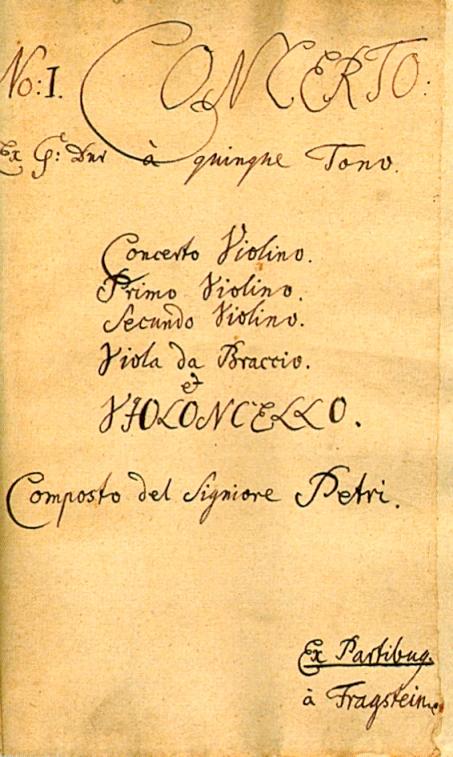 No: I. CONCERTO:
Ex G: Dur à quinque Tono.
Concerto Violino.
Primo Violino.
Secundo Violino.
Viola da Braccio.
et
VIOLONCELLO.
Composto del Signiore Petri.
Ex Partibus.
à Fragstein